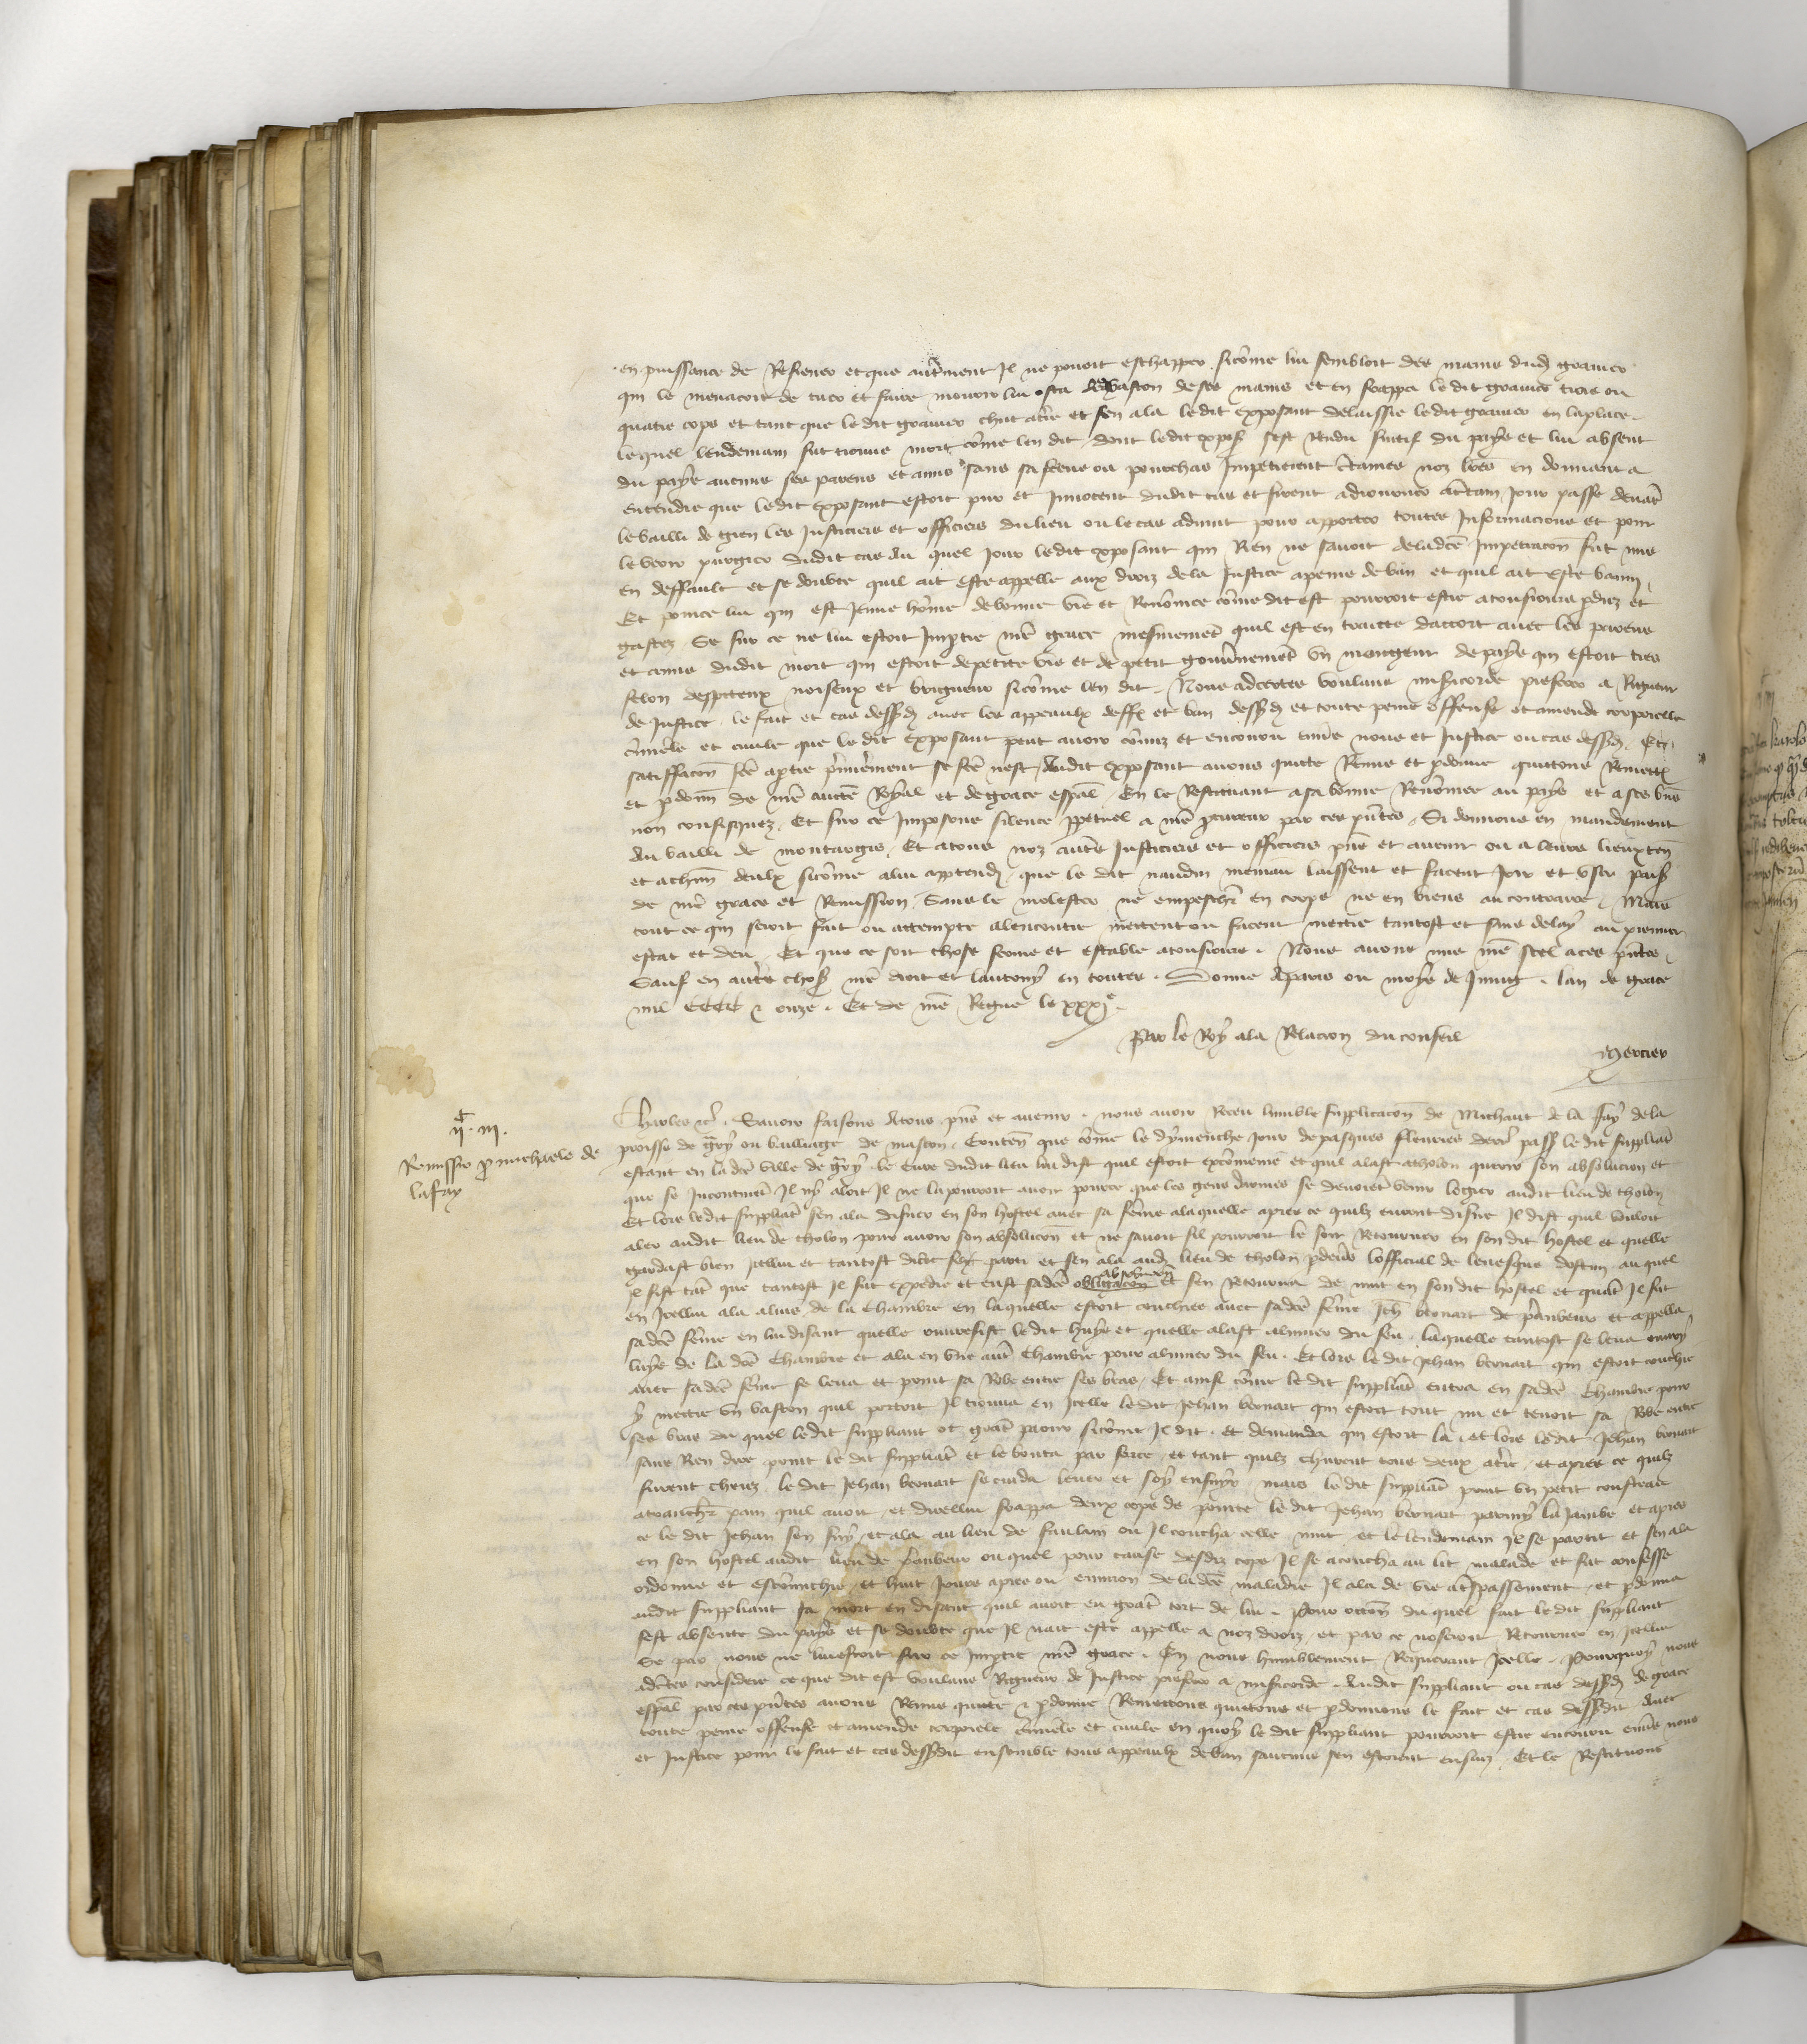 en puissance de Resister et que autrement Il ne pouoit eschapper sicome lui sembloit des mains dud gravier
qui le menacoit de tuer et faire mourir lui osta led baston de ses mains et en frappa ledit gravier trois ou
quatre cops et tant que ledit gravier chut atre et sen ala ledit exposant delaissie ledit gravier en laplace
lequel lendemain fut trouue mort come len dit dont ledit expos sest Rendu fuitif du pays et lui absent
du pays aucuns ses parens et amis sans sa sceue ou pourchas Impetrerent noz lres en donnant a
entendre que ledit exposant estoit pur et Innocent dudit cas et firent adiourner actain Jour passe deuat
le bailli de gien les Justiciers et officiers du lieu ou le cas aduint pour apporter toutes Informacions et pour
le veoir purgier dudit cas Au quel Jour ledit exposant qui Rien ne sauoit deladce Impetracon fut mis
en deffault et se doubte quil ait este appelle aux droiz dela Justice apeine de ban et quil ait este banni
Et pource lui qui est Jeune home de bonne vie et Renomee come dit est pourroit estre atousiours pdiz et
gastez Se sur ce ne lui estoit Imptie nre grace mesmement quil est en traictie daccort auec les parens
et amis dudit mort qui estoit depetite vie et de petit gouunement vn mengeur depays qui estoit tres
felon despiteux noiseux et brigueur sicome len dit Nous adcertes voulans misicorde preferer a Rigueur
de Justice le fait et cas dessd auec les appeaulx deff et ban dessd et toute peine offense et amende corporelle
criminele et ciuile que le dit exposant peut auoir comiz et encouru enus nous et Justice ou cas dessd Et
satiffacon fce aptie pmierement se fce nest Audit exposant auons quitte Remis et pdonne quittons Remett
et pdonn de nre aucte Royal et de grace espal En le Restituant a sa bonne Renomee au pays et a ses bns
non confisquez Et sur ce Imposons silence ppetuel a nre pcureur par ces pntes Si donnons en mandement
Au bailli de montargis Et atous noz autres Justiciers et officiers pns et auenir ou a leurs lieuxten
et achun deulx sicome alui apptendr que le dit naudin laissent et facent Joir et vser paisi
de nre grace et Remission Sans le molester ne empeschr en corps ne en biens au contraire Mais
tout ce qui seroit fait ou attempte alencontre mettent ou facent mettre tantost et sans delay au premier
estat et deu Et que ce soit chose ferme et estable atousiours Nous auons mis nre seel aces pntes
Sauf en autre chos nre droit et lautruy en toutes Donne Aparis ou moys de Juing lan de grace
mil CCCC & onze Et de nre Regne le xxxje
Par le Roy ala Relacion du conseil
Mercier
ij iij
Remissio p michaele de
lafay
Charles etc Sauoir faisons Atous pns et auenir nous auoir Receu lumble supplicacon de Michaut de la Fay dela
proisse de ou bailliage de mascon Conten que come le dymenche Jour de pasques fleuries derr pass le dit suppliat
estant en ladce ville de le Cure dudit lieu lui dist quil estoit excomenie et quil alast atholon querir son absolucion et
que se Incontinat Il ny aloit Il ne lapourroit auoir pource que les gens darmes se deuoiet venir logier audit lieu de tholon
Et lors ledit suppliat sen ala disner en son hostel auec sa feme alaquelle apres ce quilz eurent disne Il dist quil vouloit
aler audit lieu de tholon pour auoir son absolucon et ne sauoit sil pourroit le soir Retourner en son dit hostel et quelle
gardast bien Icellui et tantost dilec se parti et sen ala aud lieu de tholon pdeuers lofficial de leuesque dostun au quel
Il fist tat que tantost Il fut expedie et eust sadce obligacon absolucon Et sen Retourna de nuit en sondit hostel et quat Il fut
en Icellui ala aluis de la Chambre en laquelle estoit couchiee auec sadce feme Jeh bernart de et appella
sadce feme en lui disant quelle ouuresist ledit huys et quelle alast alumer du feu laquelle tantost se leua ouury
luys de ladce Chambre et ala en vne autre Chambre pour alumer du feu Et lors le dit Jehan bernart qui estoit couchie
auec sadce feme se leua et print sa Robe entre ses bras Et ainsi come le dit suppliat entra en sadce Chambre pour
y mettre vn baston quil portoit Il trouua en Icelle ledit Jehan bernart qui estoit tout nu et tenoit sa Robe entre
ses bras du quel ledit suppliant ot grat paour sicome Il dit et demanda qui estoit la et lors ledit Jehan bernart
sans Rien dire print le dit suppliat et le bouta par force et tant quilz chirent tous deux atre et apres ce quilz
furent cheuz le dit Jehan bernart se cuida leuer et soy enfuyr mais le dit suppliat print vn petit cousteau
atrancher pain quil auoit et dicellui frappa deux cops de pointe le dit Jehan bernart parmy la Jambe et apres
ce le dit Jehan sen fuy et ala au lieu de saulain ou Il coucha celle nuit et le lendemain Il se partit et sen ala
en son hostel audit lieu de ouquel pour cause desdiz cops Il se acoucha au lit malade et fut confesse
ordonne et escomichie et huit Jours apres ou enuiron de ladce maladie Il ala de vie atrespassement et pdonna
audit suppliant sa mort en disant quil auoit eu grat tort de lui Pour occon du quel fait ledit suppliant
sest absente du pays et se doubte que Il nait este appelle a noz droiz et par ce noseroit Retourner en Icellui
Se par nous ne lui estoit sur ce Imptie nre grace En nous humblement Requerant Icelle Pourquoy nous
adctes considere ce que dit est voulans Rigueur de Justice preferer a misicorde Audit suppliant ou cas dessd de grace
espal par ces pntes auons Remis quitte & pdonne Remettons quittons et pdonnons le fait et cas dessdit Auec
toute peine offense et amende corporele criminele et ciuile en quoy le dit suppliant pourroit estre encouru enus nous
et Justice pour le fait et cas dessdit ensemble tous appeaulx de ban saucuns sen estoient ensuiz Et le Restituons